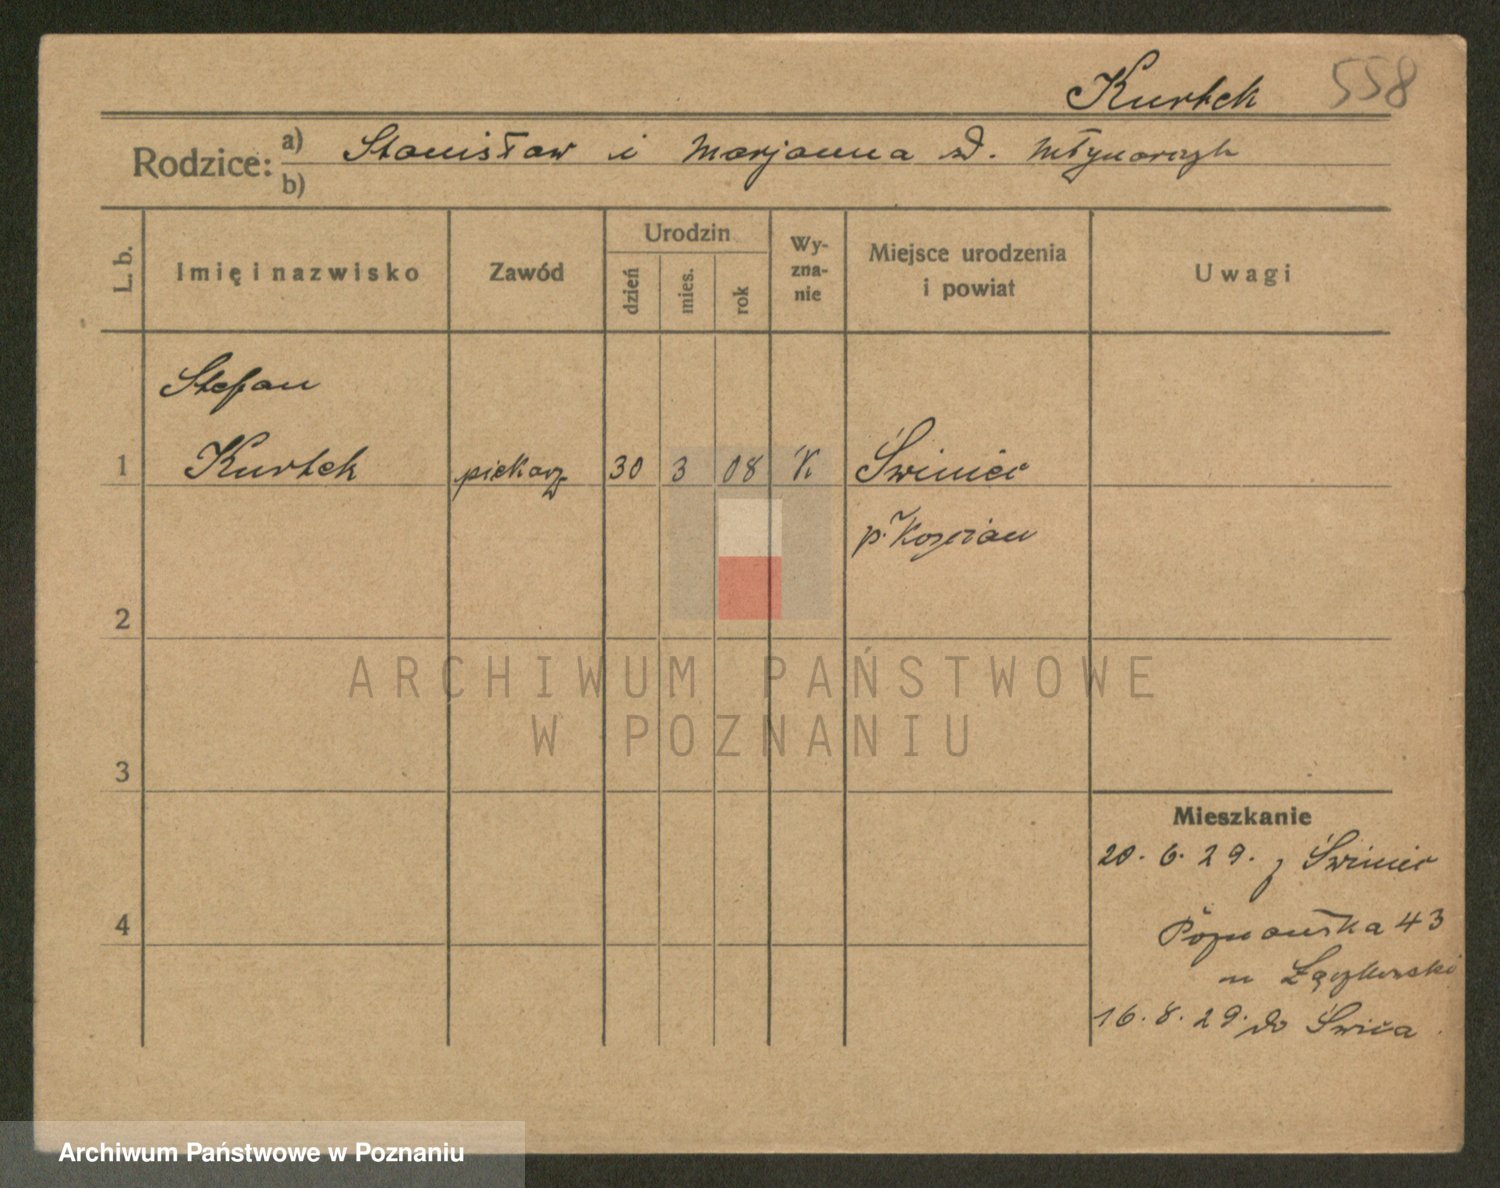 Kurtek 558
Rodzice: a) Stanisław i Marjanna zd. Młynarczyk
b)
L. b. Imię i nazwisko Zawód Urodzin dzień mies. rok Wy-zna-nie Miejsce urodzenia i powiat Uwagi
Stefan
1 Kurtek piekarz 30 3 08 K Świniec
p. Kościan
2
ARCHIWUM PAŃSTWOWE
W POZNANIU
3
Mieszkanie
20. 6. 29. z Świniec
4 Poznańska 43
16. 8. 29. do
Archiwum Państwowe w Poznaniu